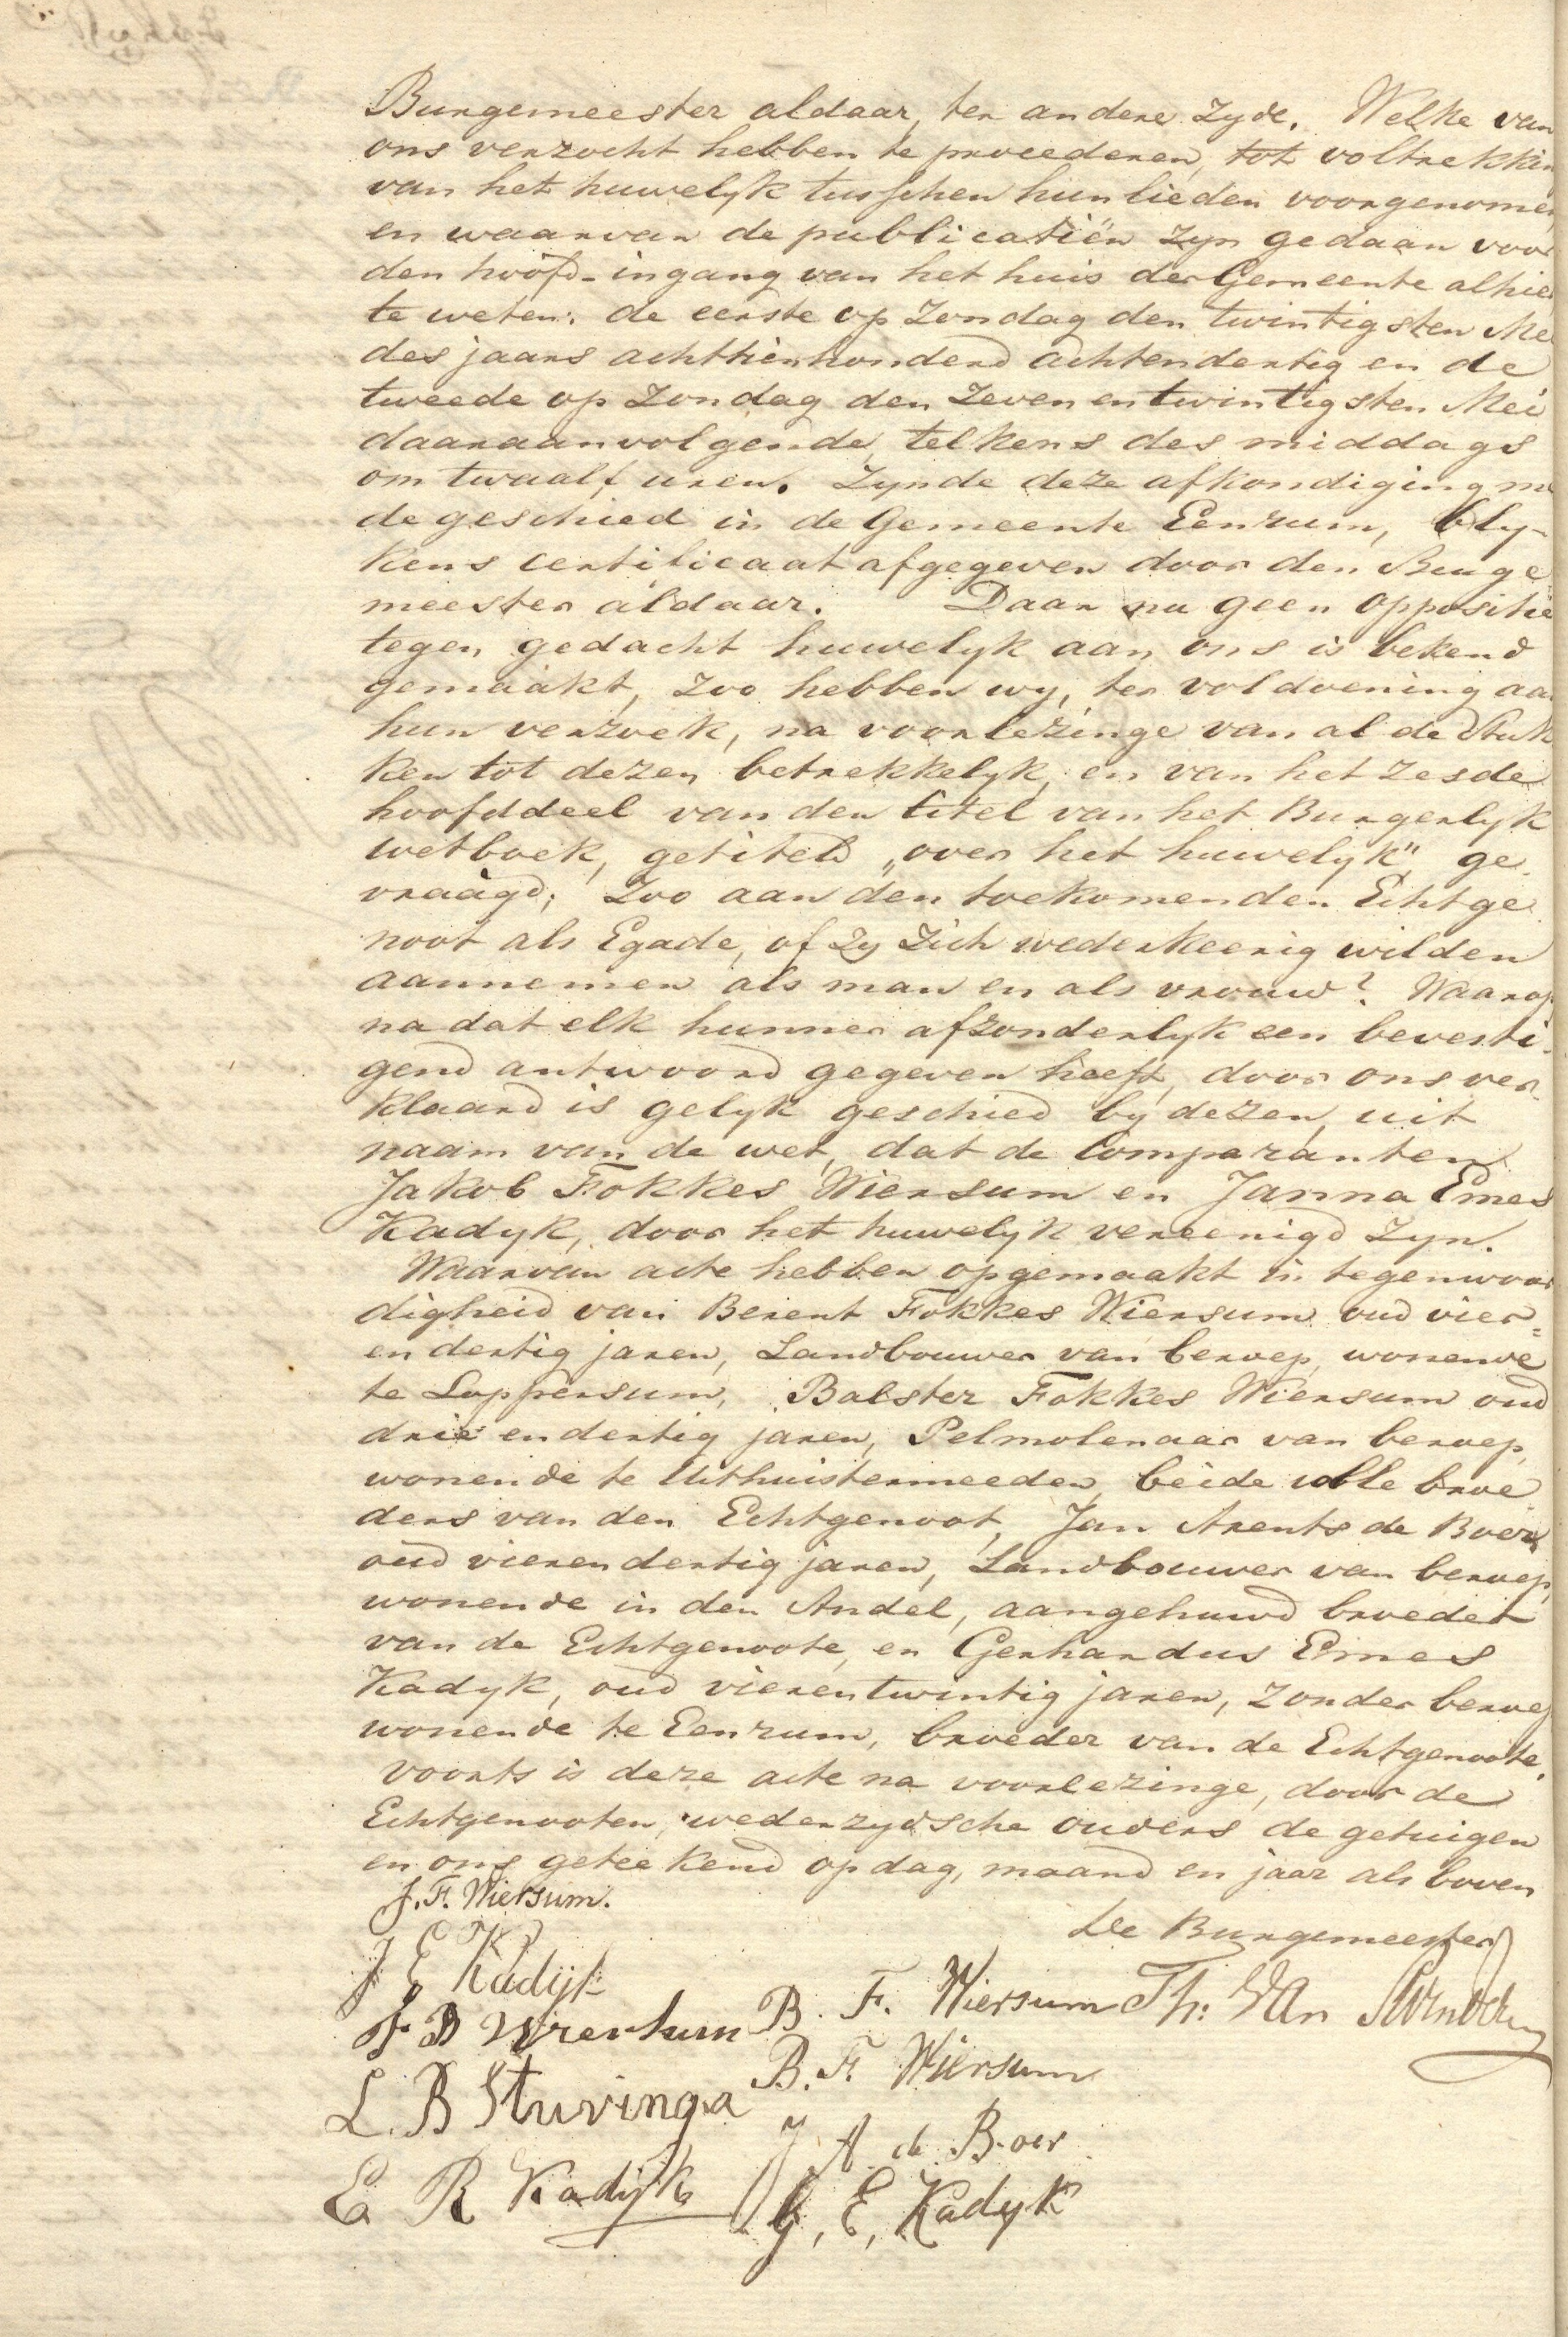 Burgemeester aldaar, ter andere zyde. Welke van
ons verzocht hebben te proceederen, tot voltrekkin
van het huwelyk tusschen hun lieden voorgenomen
en waarvan de publicatiën zyn gedaan voor
den hoofd-ingang van het huis der Gemeente alhier
te weten: de eerste op Zondag den twintigsten Mei
des jaars achttienhonderd achtendertig en de
tweede op Zondag den Zevenentwintigsten Mei
daaraanvolgende, telkens des middags
om twaalf uren. Zynde deze afkondiging me
de geschied in de Gemeente Eenrum, bly-
kens certificaat afgegeven door den Burge
meester aldaar. Daar nu geen oppositie
tegen gedacht huwelyk aan ons is bekend
gemaakt, zoo hebben wy, ter voldoening aan
hun verzoek, na voorlezinge van al de Stuk
ken tot dezen betrekkelyk, en van het zesde
hoofddeel van den titel van het Burgerlyk
wetboek, getiteld „over het huwelyk" ge-
vraagd; Zoo aan den toekomenden Echtge
noot als Egade, of zy zich wederkeerig wilden
aannemen als man en als vrouw? Waarop
na dat elk hunner afzonderlyk een bevesti-
gend antwoord gegeven heeft, door ons ver-
klaard is gelyk geschied by dezen, uit
naam van de wet, dat de Comparanten
Jakob Fokkes Wiersum en Janna Emes
Kadyk, door het huwelyk vereenigd zyn.
Waarvan acte hebben opgemaakt in tegenwoor
digheid van Berent Fokkes Wiersum oud vier=
en dertig jaren, Landbouwer van beroep, wonende
te Loppersum, Balster Fokkes Wiersum oud
drie en dertig jaren, Pelmolenaar van beroep,
wonende te Uithuistermeeden, beide volle broe-
ders van den Echtgenoot, Jan Arents de Boer
oud vierendertig jaren, Landbouwer van beroep,
wonende in den Andel, aangehuwd broeder
van de Echtgenoote, en Gerhardus Emes
Kadyk, oud vierentwintig jaren, zonder beroep
wonende te Eenrum, broeder van de Echtgenoote.
Voorts is deze acte na voorlezinge, door de
Echtgenooten, wederzydsche ouders de getuigen
en ons geteekend op dag, maand en jaar als boven
J. F. Wiersum.
De Burgemeester
J E Kadijk
B. F. Wiersum Th: Van
F B Wiersum
B. F. Wiersum
L. B Stuvinga
J A de Boer
E R Kadijk
G, E, Kadyk